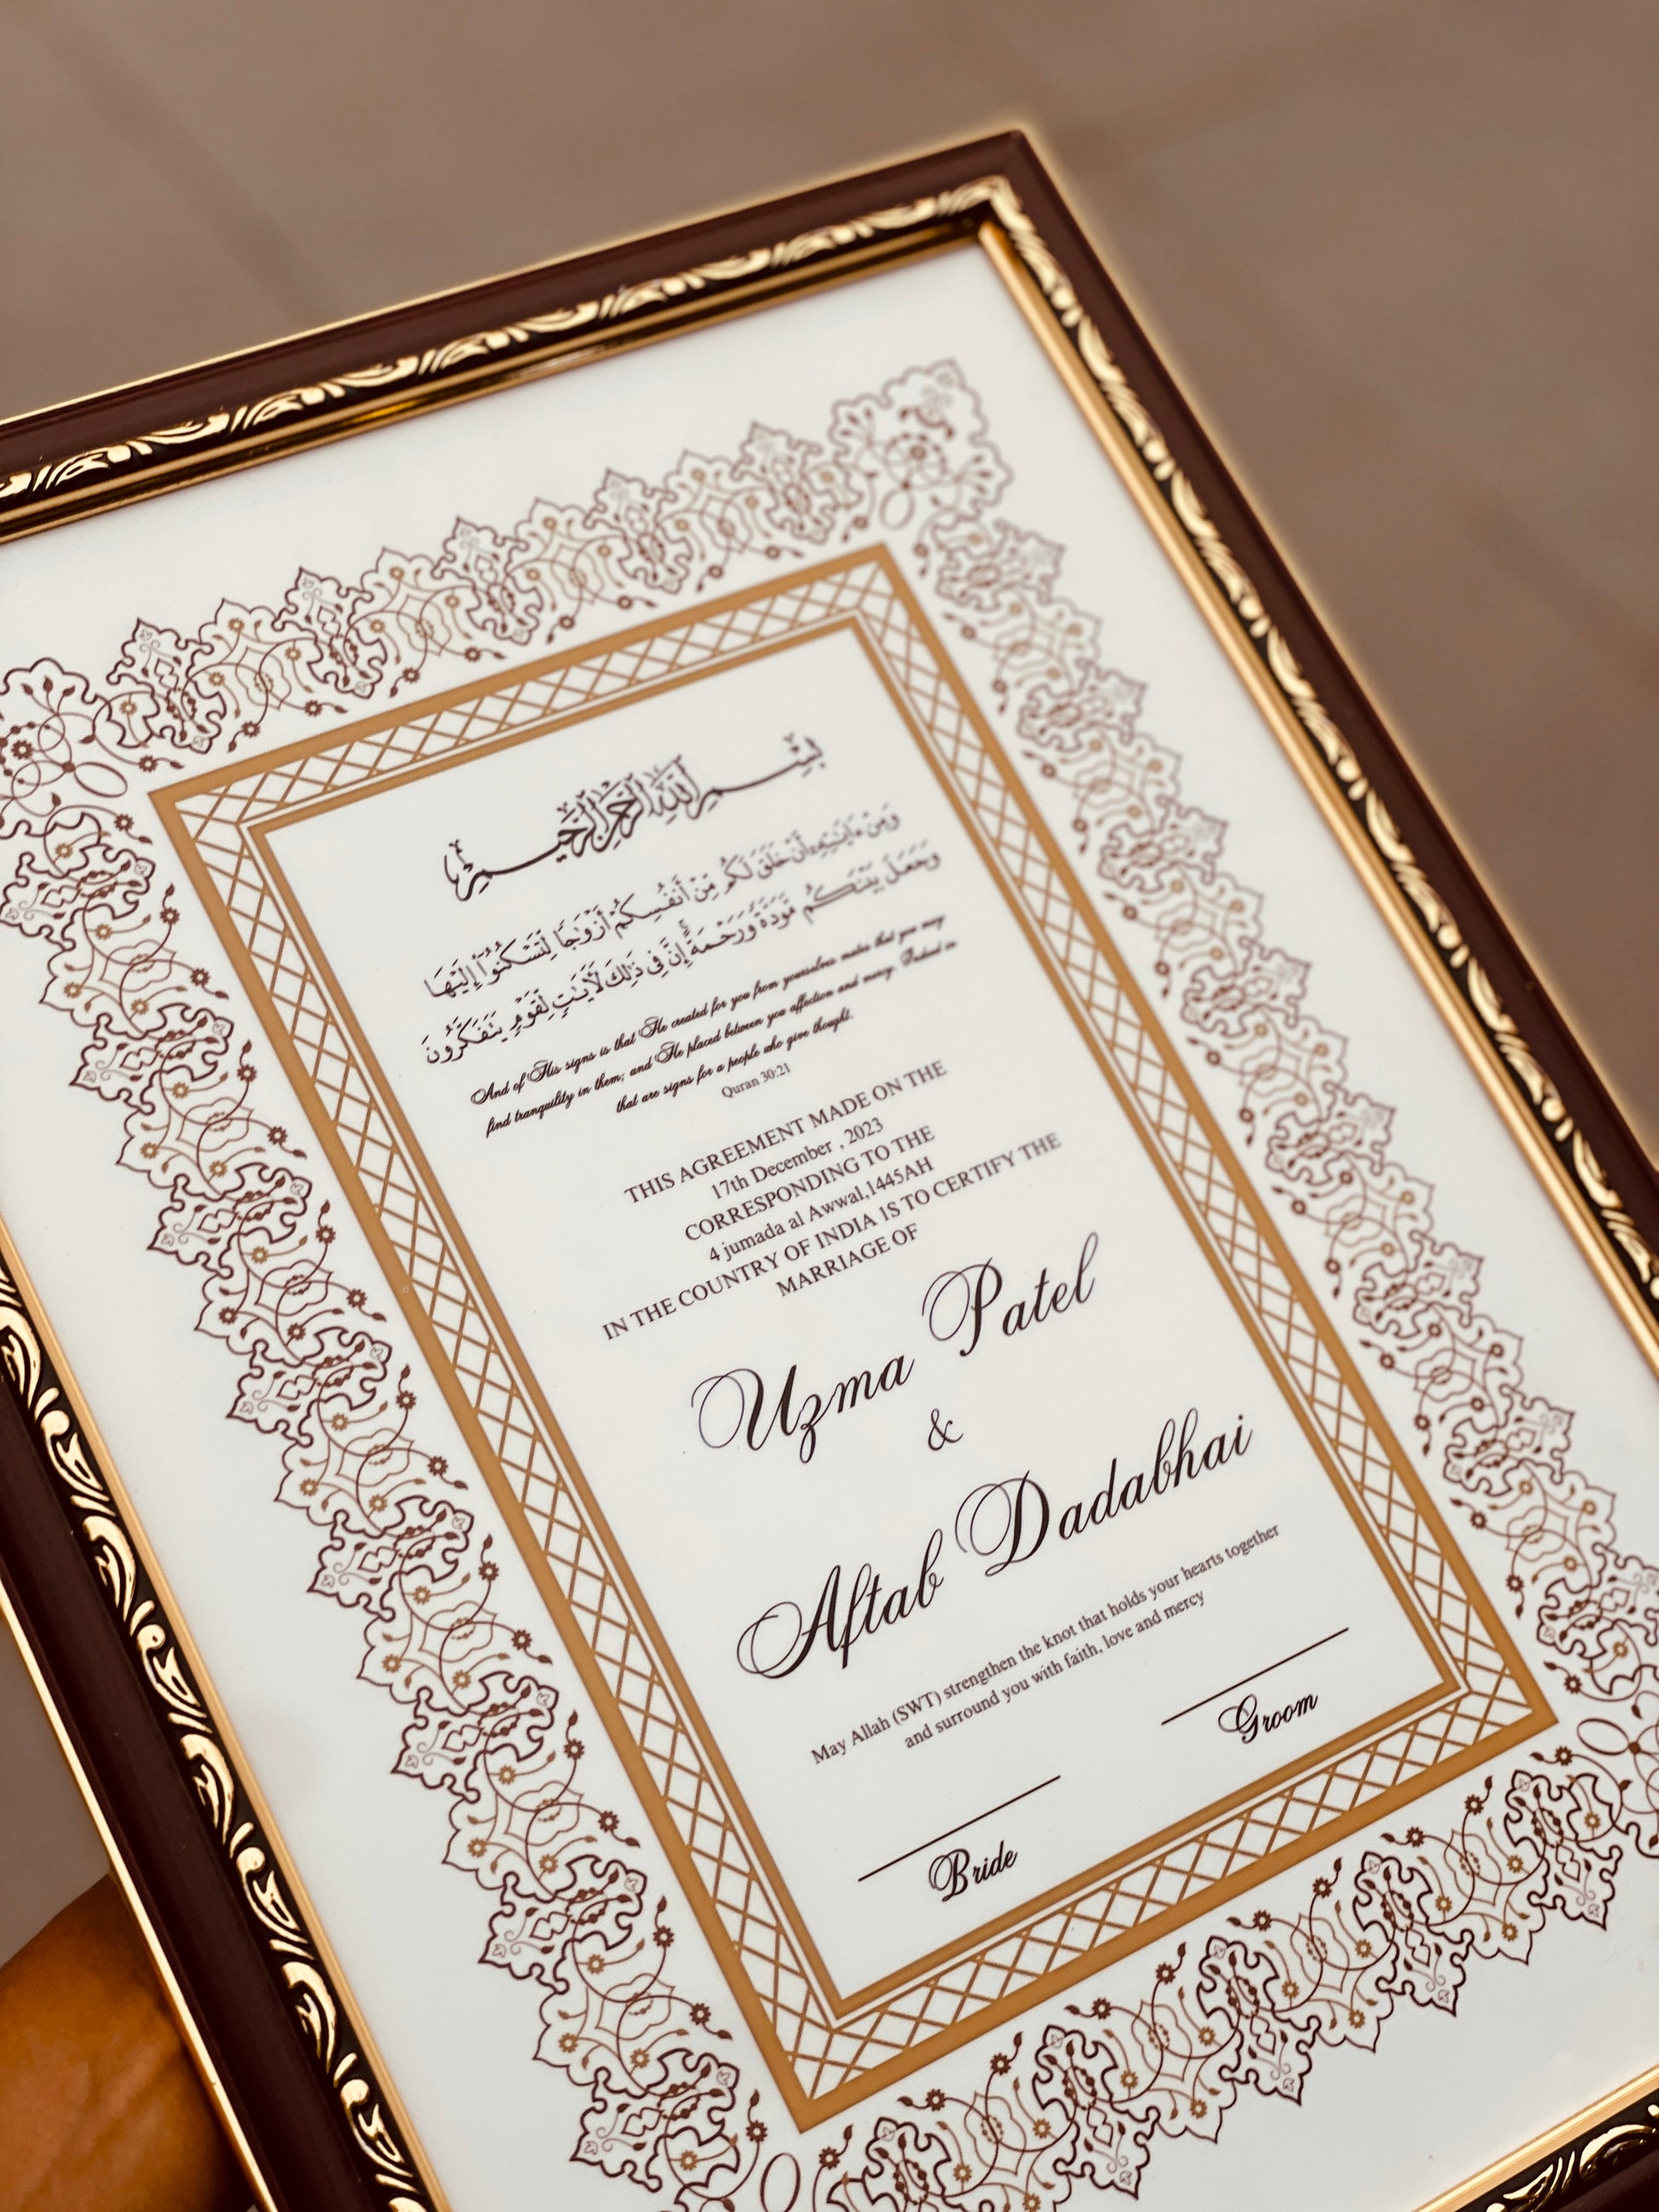 بسم الله الرحمن الرحيم
وَمِنْ ءَايَٰتِهِۦٓ أَنْ خَلَقَ لَكُم مِّنْ أَنفُسِكُمْ أَزْوَٰجًا لِّتَسْكُنُوٓا۟ إِلَيْهَا
وَجَعَلَ بَيْنَكُم مَّوَدَّةً وَرَحْمَةً إِنَّ فِى ذَٰلِكَ لَءَايَٰتٍ لِّقَوْمٍ يَتَفَكَّرُونَ
And of His signs is that He created for you from yourselves mates that you may
find tranquility in them; and He placed between you affection and mercy. Indeed in
that are signs for a people who give thought.
Quran 30:21
THIS AGREEMENT MADE ON THE
17th December , 2023
CORRESPONDING TO THE
4 jumada al Awwal,1445AH
IN THE COUNTRY OF INDIA 1S TO CERTIFY THE
MARRIAGE OF
Uzma Patel
&
Aftab Dadabhai
May Allah (SWT) strengthen the knot that holds your hearts together
and surround you with faith, love and mercy
Groom
Bride